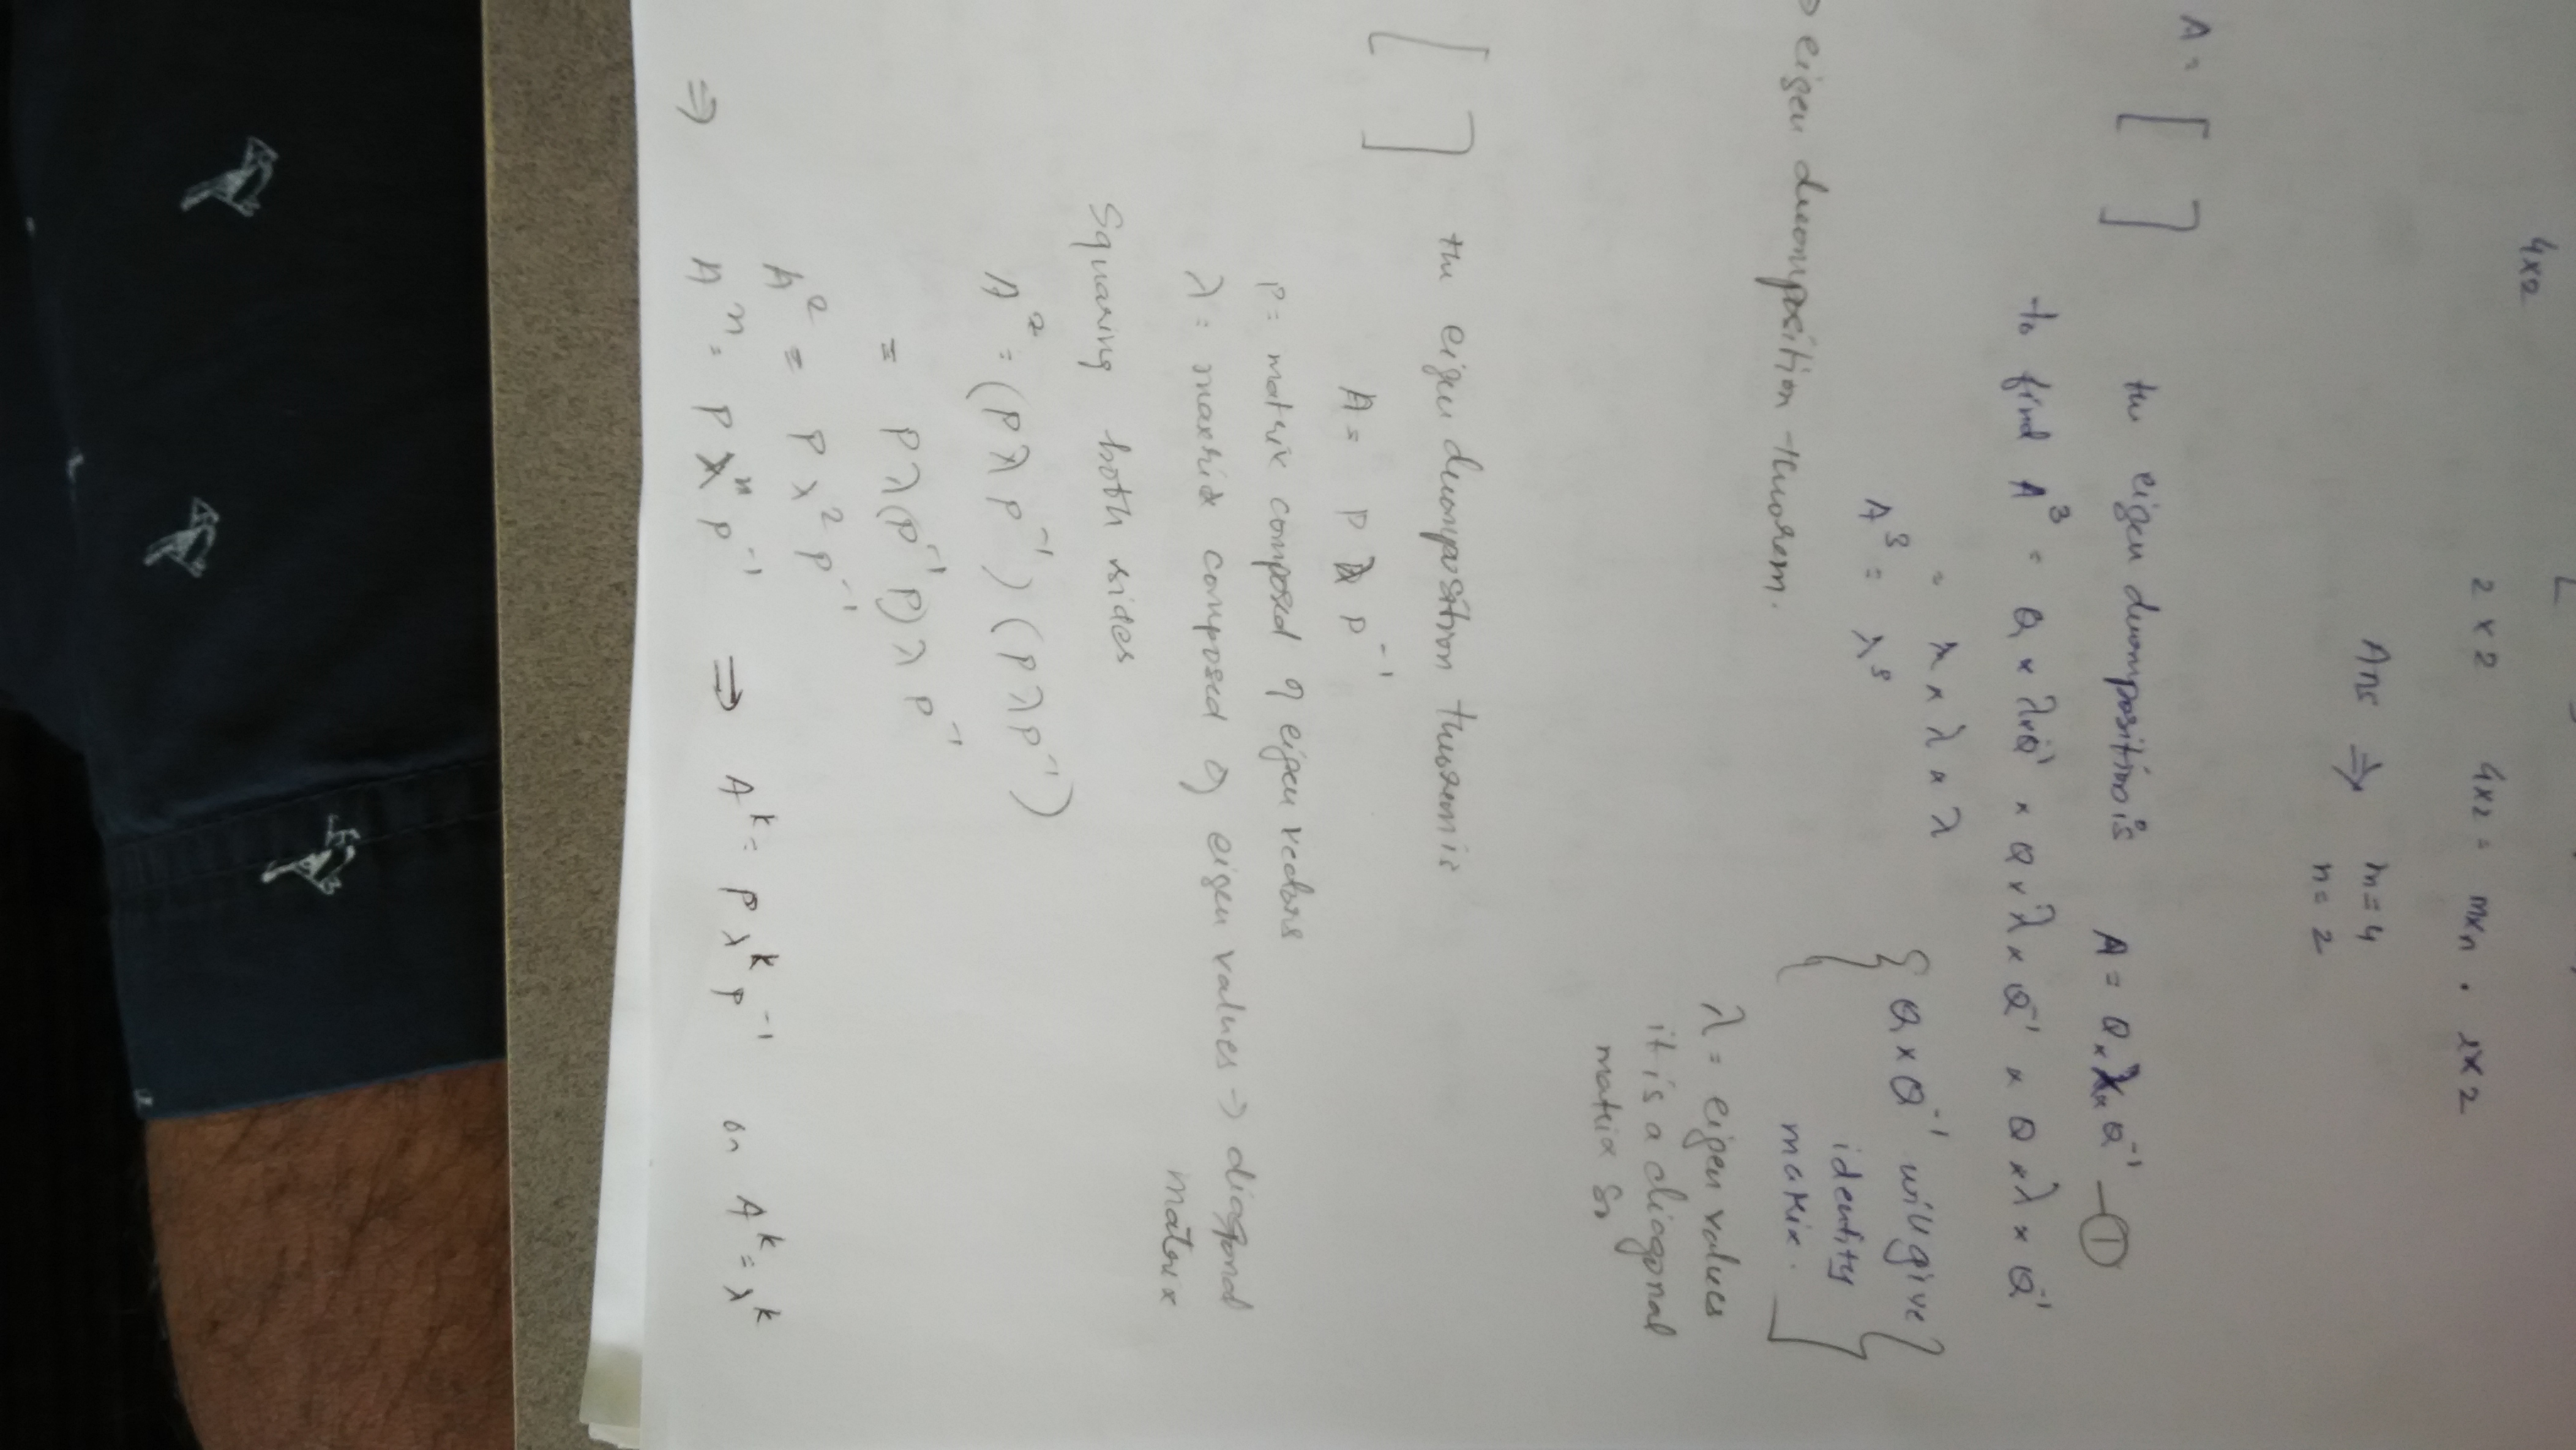 4x2
2 x 2 4x2 = mxn . 2x2
Ans ⇒ m = 4
n = 2
A = [ ] the eigen decomposition is A = Q x λ x Q⁻¹ — ①
to find A³ = Q x λ x Q⁻¹ x Q x λ x Q⁻¹ x Q x λ x Q⁻¹
= λ x λ x λ { Q x Q⁻¹ will give }
A³ = λ³ identity
matrix.
eigen decomposition theorem.
λ = eigen values
it is a diagonal
matrix so
[ ] the eigen decomposition theorem is
A = P λ P⁻¹
P = matrix composed of eigen vectors
λ = maxrix composed of eigen values → diagonal
matrix
Squaring both sides
A² = (P λ P⁻¹) (P λ P⁻¹)
= P λ (P⁻¹ P) λ P⁻¹
A² = P λ² P⁻¹
⇒ Aⁿ = P λⁿ P⁻¹ ⇒ Aᵏ = P λᵏ P⁻¹ or Aᵏ = λᵏ